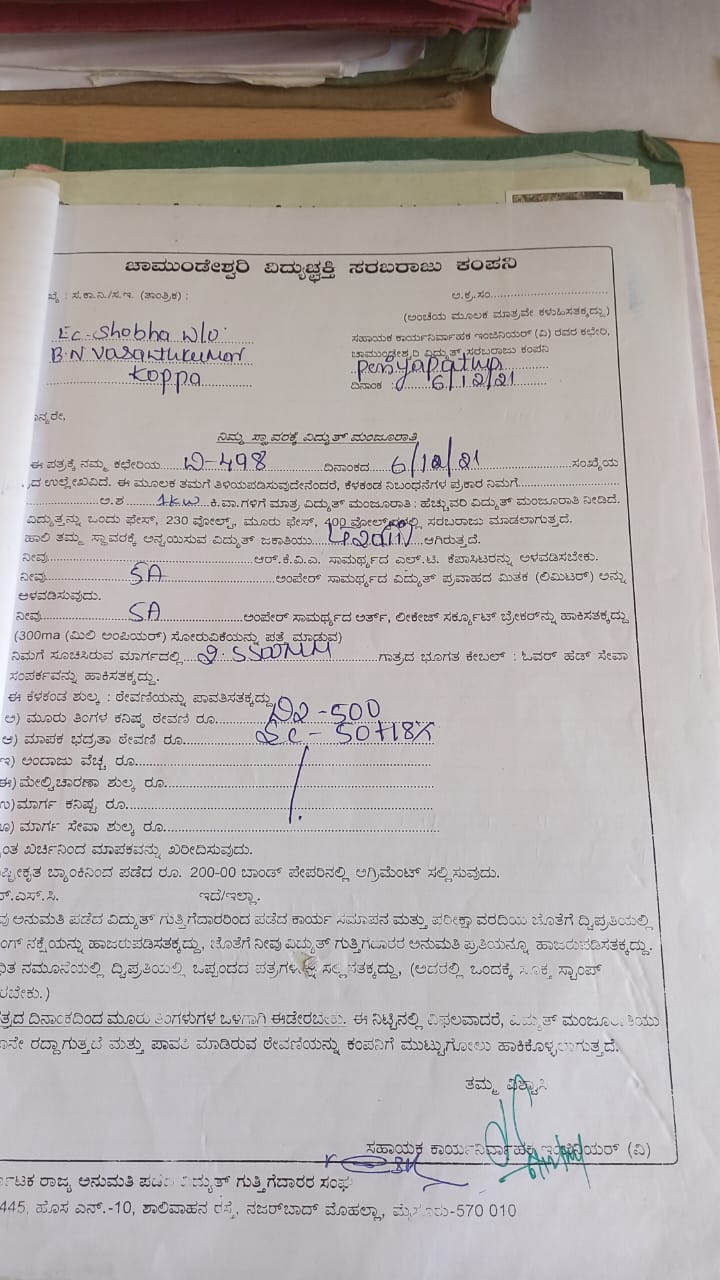 ಚಾಮುಂಡೇಶ್ವರಿ ವಿದ್ಯುಚ್ಛಕ್ತಿ ಸರಬರಾಜು ಕಂಪನಿ
: ಸ.ಕಾ.ನಿ./ಸ.ಇ. (ತಾಂತ್ರಿಕ) :
ಅ.ಕ್ರ.ಸಂ.
(ಅಂಚೆಯ ಮೂಲಕ ಮಾತ್ರವೇ ಕಳುಹಿಸತಕ್ಕದ್ದು)
Shobha W/o
B.N Vasanthkumar
Koppa
ಸಹಾಯಕ ಕಾರ್ಯನಿರ್ವಾಹಕ ಇಂಜಿನಿಯರ್ (ವಿ) ರವರ ಕಛೇರಿ,
ಚಾಮುಂಡೇಶ್ವರಿ ವಿದ್ಯುತ್ ಸರಬರಾಜು ಕಂಪನಿ
ದಿನಾಂಕ : 6/12/21
ನ್ಯರೇ,
ನಿಮ್ಮ ಸ್ಥಾವರಕ್ಕೆ ವಿದ್ಯುತ್ ಮಂಜೂರಾತಿ
ಈ ಪತ್ರಕ್ಕೆ ನಮ್ಮ ಕಛೇರಿಯ -498 ದಿನಾಂಕದ 6/12/21 ಸಂಖ್ಯೆಯ
ದ ಉಲ್ಲೇಖವಿದೆ. ಈ ಮೂಲಕ ತಮಗೆ ತಿಳಿಯಪಡಿಸುವುದೇನೆಂದರೆ, ಕೆಳಕಂಡ ನಿಬಂಧನೆಗಳ ಪ್ರಕಾರ ನಿಮಗೆ
ಅ.ಶ 1kw ಕಿ.ವಾ.ಗಳಿಗೆ ಮಾತ್ರ ವಿದ್ಯುತ್ ಮಂಜೂರಾತಿ : ಹೆಚ್ಚುವರಿ ವಿದ್ಯುತ್ ಮಂಜೂರಾತಿ ನೀಡಿದೆ.
ವಿದ್ಯುತ್ತನ್ನು ಒಂದು ಫೇಸ್, 230 ವೋಲ್ಟ್, ಮೂರು ಫೇಸ್, 400 ವೋಲ್ಟ್‌ನಲ್ಲಿ ಸರಬರಾಜು ಮಾಡಲಾಗುತ್ತದೆ.
ಹಾಲಿ ತಮ್ಮ ಸ್ಥಾವರಕ್ಕೆ ಅನ್ವಯಿಸುವ ವಿದ್ಯುತ್ ಜಕಾತಿಯು ಆಗಿರುತ್ತದೆ.
ನೀವು ಆರ್.ಕೆ.ವಿ.ಎ. ಸಾಮರ್ಥ್ಯದ ಎಲ್.ಟಿ. ಕೆಪಾಸಿಟರನ್ನು ಅಳವಡಿಸಬೇಕು.
ನೀವು 5A ಅಂಪೇರ್ ಸಾಮರ್ಥ್ಯದ ವಿದ್ಯುತ್ ಪ್ರವಾಹದ ಮಿತಕ (ಲಿಮಿಟರ್) ಅನ್ನು
ಅಳವಡಿಸುವುದು.
ನೀವು 5A ಅಂಪೇರ್ ಸಾಮರ್ಥ್ಯದ ಅರ್ತ್, ಲೀಕೇಜ್ ಸರ್ಕ್ಯೂಟ್ ಬ್ರೇಕರ್‌ನ್ನು ಹಾಕಿಸತಕ್ಕದ್ದು
(300ma (ಮಿಲಿ ಅಂಪಿಯರ್) ಸೋರುವಿಕೆಯನ್ನು ಪತ್ತೆ ಮಾಡುವ)
ನಿಮಗೆ ಸೂಚಿಸಿರುವ ಮಾರ್ಗದಲ್ಲಿ ಗಾತ್ರದ ಭೂಗತ ಕೇಬಲ್ : ಓವರ್ ಹೆಡ್ ಸೇವಾ
ಸಂಪರ್ಕವನ್ನು ಹಾಕಿಸತಕ್ಕದ್ದು.
ಈ ಕೆಳಕಂಡ ಶುಲ್ಕ : ಠೇವಣಿಯನ್ನು ಪಾವತಿಸತಕ್ಕದ್ದು
ಅ) ಮೂರು ತಿಂಗಳ ಕನಿಷ್ಠ ಠೇವಣಿ ರೂ. -500
ಆ) ಮಾಪಕ ಭದ್ರತಾ ಠೇವಣಿ ರೂ. SC - 50+18%
ಇ) ಅಂದಾಜು ವೆಚ್ಚ ರೂ.
ಈ) ಮೇಲ್ವಿಚಾರಣಾ ಶುಲ್ಕ ರೂ.
ಉ) ಮಾರ್ಗ ಕನಿಷ್ಟ ರೂ.
ಊ) ಮಾರ್ಗ ಸೇವಾ ಶುಲ್ಕ ರೂ.
ಂತ ಖರ್ಚಿನಿಂದ ಮಾಪಕವನ್ನು ಖರೀದಿಸುವುದು.
ಷ್ಟ್ರೀಕೃತ ಬ್ಯಾಂಕಿನಿಂದ ಪಡೆದ ರೂ. 200-00 ಬಾಂಡ್ ಪೇಪರಿನಲ್ಲಿ ಅಗ್ರಿಮೆಂಟ್ ಸಲ್ಲಿಸುವುದು.
ರ್.ಎಸ್.ಸಿ. ಇದೆ/ಇಲ್ಲಾ.
ವು ಅನುಮತಿ ಪಡೆದ ವಿದ್ಯುತ್ ಗುತ್ತಿಗೆದಾರರಿಂದ ಪಡೆದ ಕಾರ್ಯ ಸಮಾಪನ ಮತ್ತು ಪರೀಕ್ಷಾ ವರದಿಯ ಜೊತೆಗೆ ದ್ವಿಪ್ರತಿಯಲ್ಲಿ
ಂಗ್ ನಕ್ಷೆಯನ್ನು ಹಾಜರುಪಡಿಸತಕ್ಕದ್ದು, ಜೊತೆಗೆ ನೀವು ವಿದ್ಯುತ್ ಗುತ್ತಿಗೆದಾರರ ಅನುಮತಿ ಪ್ರತಿಯನ್ನೂ ಹಾಜರುಪಡಿಸತಕ್ಕದ್ದು.
ತ ನಮೂನೆಯಲ್ಲಿ ದ್ವಿಪ್ರತಿಯಲ್ಲಿ ಒಪ್ಪಂದದ ಪತ್ರಗಳನ್ನು ಸಲ್ಲಿಸತಕ್ಕದ್ದು, (ಅದರಲ್ಲಿ ಒಂದಕ್ಕೆ ಸೂಕ್ತ ಸ್ಟಾಂಪ್
ರಬೇಕು.)
ತ್ರದ ದಿನಾಂಕದಿಂದ ಮೂರು ತಿಂಗಳುಗಳ ಒಳಗಾಗಿ ಈಡೇರಬೇಕು. ಈ ನಿಟ್ಟಿನಲ್ಲಿ ವಿಫಲವಾದರೆ, ವಿದ್ಯುತ್ ಮಂಜೂರಾತಿಯು
ಾನೇ ರದ್ದಾಗುತ್ತದೆ ಮತ್ತು ಪಾವತಿ ಮಾಡಿರುವ ಠೇವಣಿಯನ್ನು ಕಂಪನಿಗೆ ಮುಟ್ಟುಗೋಲು ಹಾಕಿಕೊಳ್ಳಲಾಗುತ್ತದೆ.
ತಮ್ಮ ವಿಶ್ವಾಸಿ
ಸಹಾಯಕ ಕಾರ್ಯನಿರ್ವಾಹಕ ಇಂಜಿನಿಯರ್ (ವಿ)
ಾಟಕ ರಾಜ್ಯ ಅನುಮತಿ ಪಡೆದ ವಿದ್ಯುತ್ ಗುತ್ತಿಗೆದಾರರ ಸಂಘ
445, ಹೊಸ ಎನ್.-10, ಶಾಲಿವಾಹನ ರಸ್ತೆ, ನಜರ್‌ಬಾದ್ ಮೊಹಲ್ಲಾ, ಮೈಸೂರು-570 010